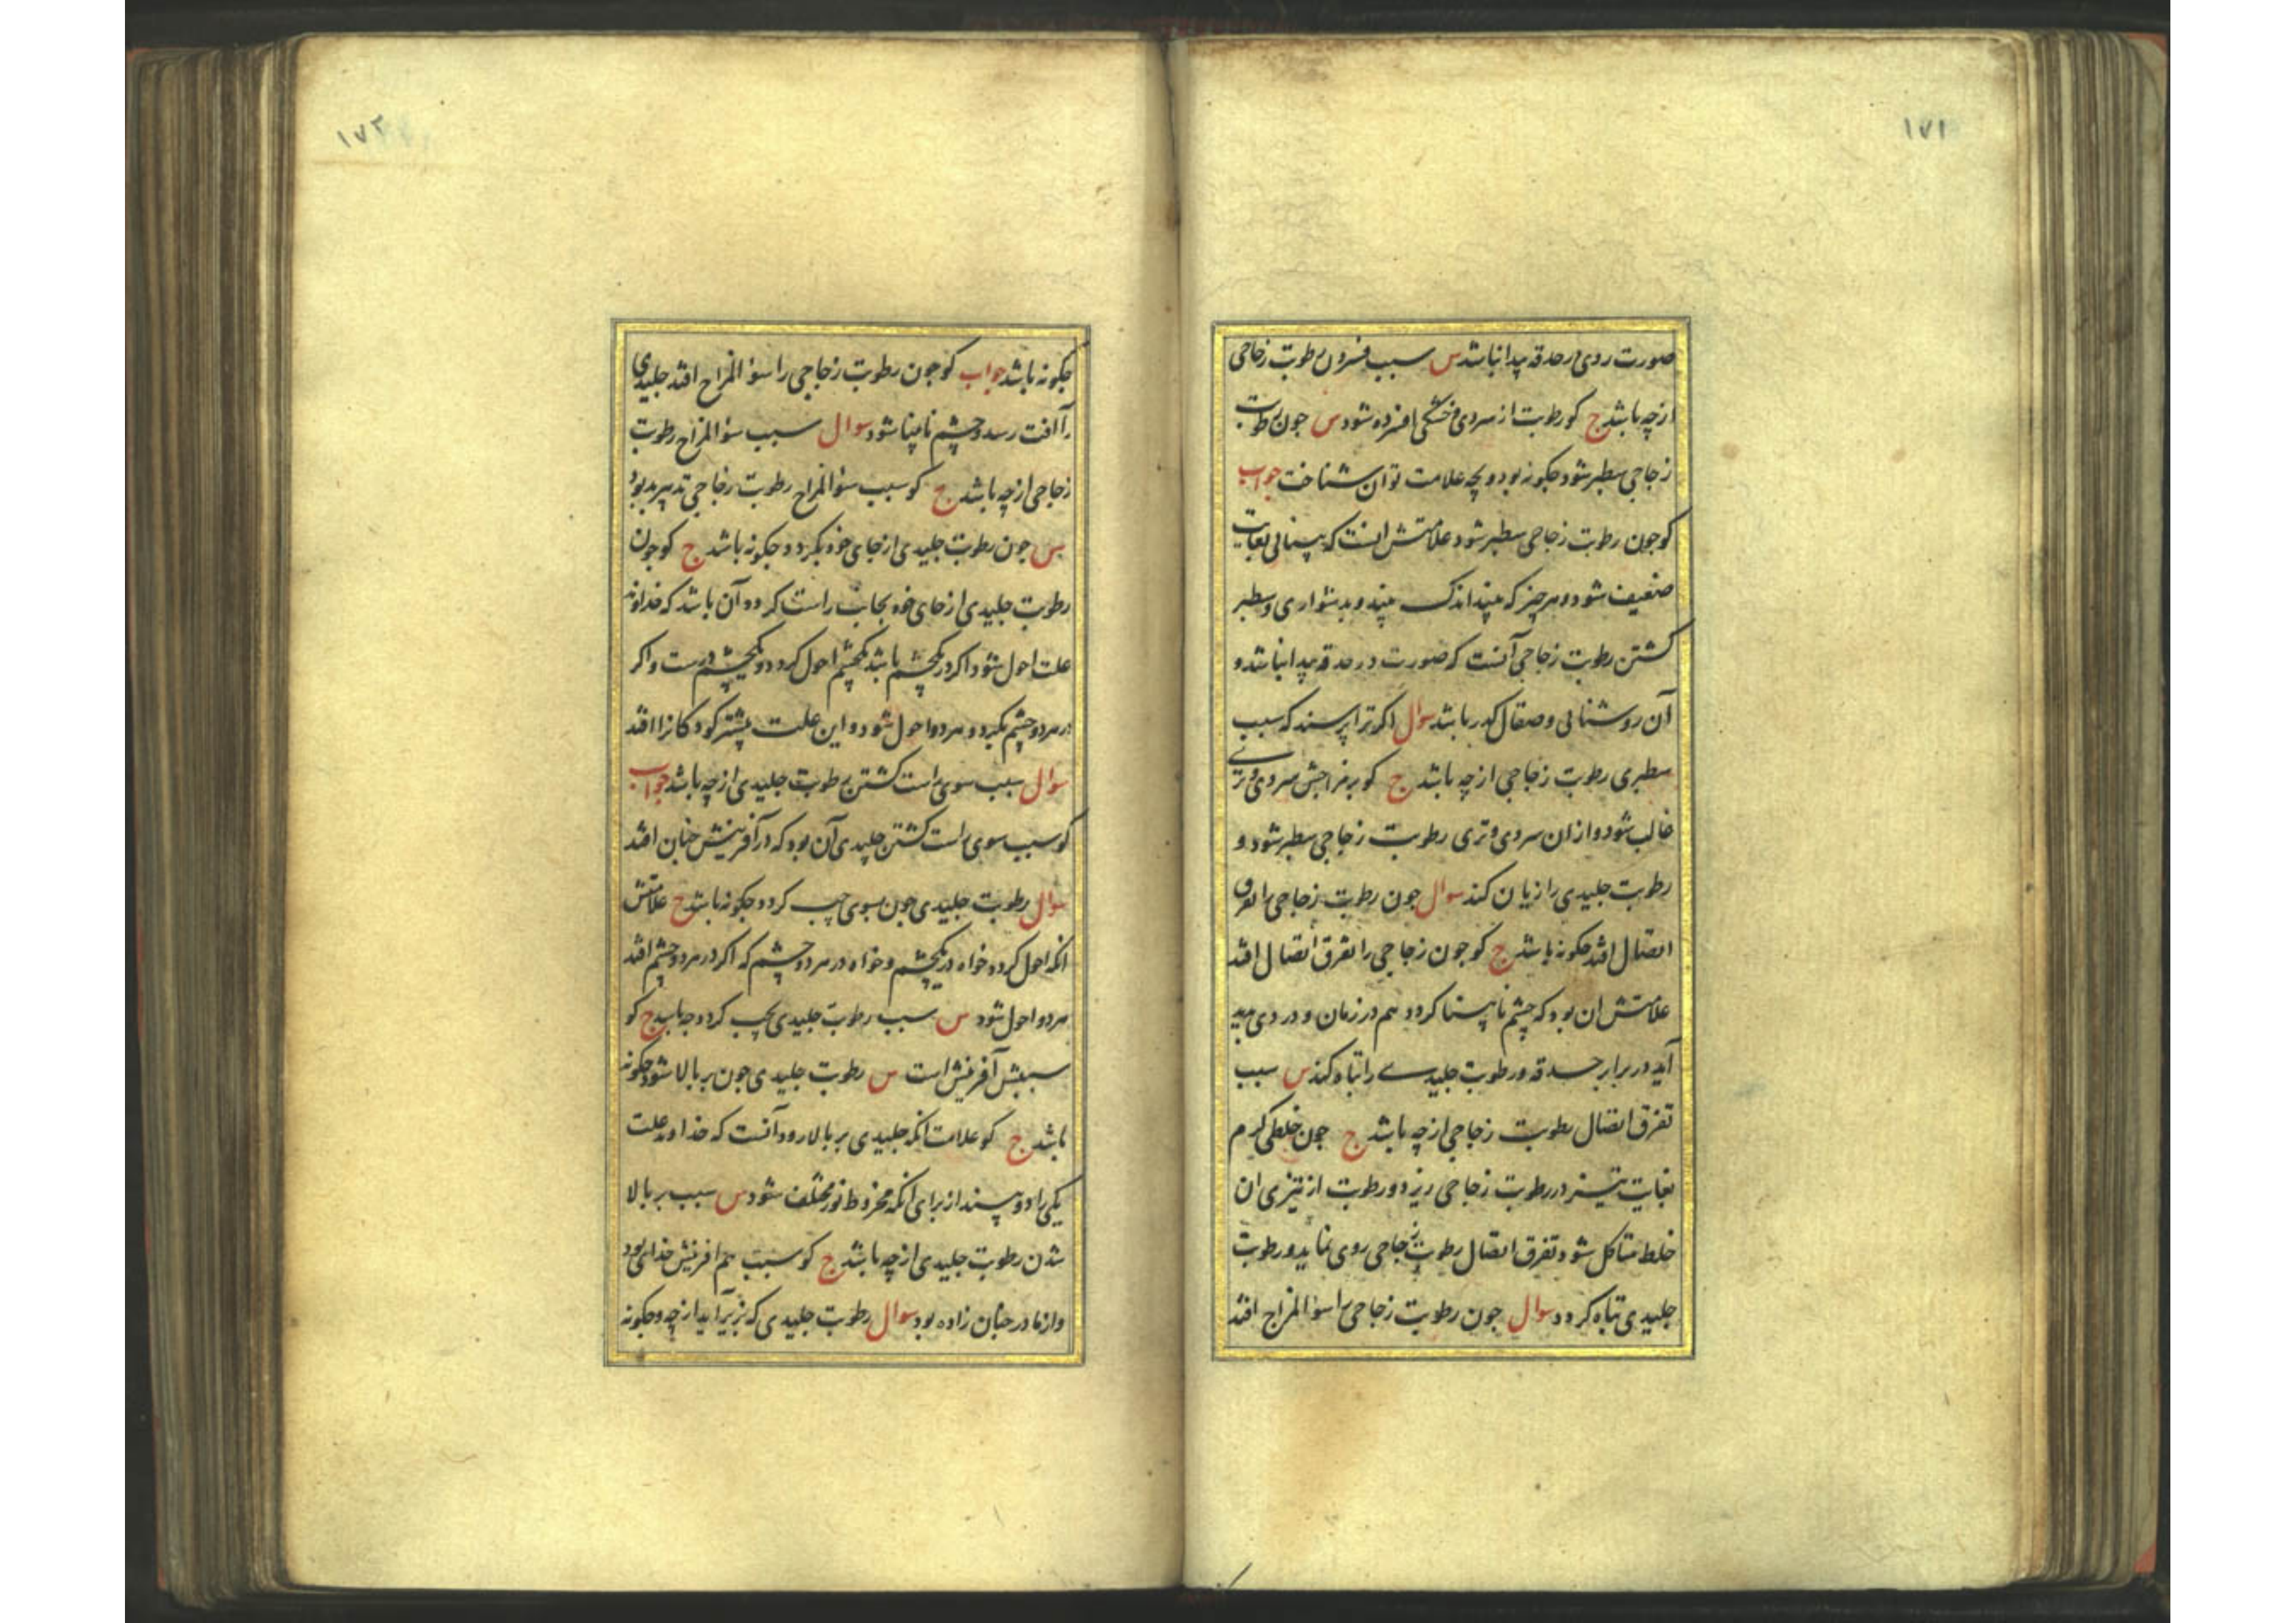 ۱۷۱
صورت روی در حدقه پیدا نباشد س سبب فسردن رطوبت زجاجی
از چه باشد ج کو رطوبت از سردی و خشکی افسرده شود س جون رطوبت
زجاجی سطبر شود جکونه بود و بچه علامت توان شناخت جواب
کو جون رطوبت زجاجی سطبر شود علامتش انست که بینائی بغایت
ضعیف شود و هر چیز که بیند اندک بیند و بدشواری و سطبر
کشتن رطوبت زجاجی آنست که صورت در حدقه پیدا نباشد و
آن روشنائی و صقال کدر باشد سوال اکر ترا پرسند که سبب
سطبری رطوبت زجاجی از چه باشد ج کو بر مزاجش سردی و تری
غالب شود و از ان سردی و تری رطوبت زجاجی سطبر شود و
رطوبت جلیدی را زیان کند سوال جون رطوبت زجاجی را تفرق
اتصال افتد جکونه باشد ج کو جون زجاجی را تفرق اتصال افتد
علامتش ان بود که چشم نابینا کردد هم در زمان و دردی پدید
آید در برابر حدقه و رطوبت جلیدی را تباه کند س سبب
تفرق اتصال رطوبت زجاجی از چه باشد ج جون خلطی کرم
بغایت تیز در رطوبت زجاجی ریزد و رطوبت از تیزی ان
خلط متاکل شود و تفرق اتصال رطوبت زجاجی روی نماید و رطوبت
جلیدی تباه کردد سوال جون رطوبت زجاجی را سوٴ المزاج افتد
۱۷۲
جکونه باشد جواب کو جون رطوبت زجاجی را سوٴ المزاج افتد جلیدی
را آفت رسد و چشم نابینا شود سوال سبب سوٴ المزاج رطوبت
زجاجی از چه باشد ج کو سبب سوٴ المزاج رطوبت زجاجی تدبیر بد بود
س جون رطوبت جلیدی از جای خود بکردد جکونه باشد ج کو جون
رطوبت جلیدی از جای خود بجانب راست کردد آن باشد که خداوند
علت احول شود اکر در یکچشم باشد یکچشم احول کردد و یکچشم درست و اکر
در هر دو چشم بکردد هر دو احول شود و این علت بیشتر کودکانرا افتد
سوال سبب سوی راست کشتن رطوبت جلیدی از چه باشد جواب
کو سبب سوی راست کشتن جلیدی آن بود که در آفرینش جنان افتد
سوال رطوبت جلیدی جون بسوی چپ کردد جکونه باشد ج علامتش
انکه احول کردد خواه در یکچشم و خواه در هر دو چشم که اکر در هر دو چشم افتد
هر دو احول شود س سبب رطوبت جلیدی بچپ کردد چه باشد ج کو
سببش آفرینش است س رطوبت جلیدی جون بر بالا شود جکونه
باشد ج کو علامت انکه جلیدی بر بالا رود آنست که خداوند علت
یکی را دو بیند از برای انکه مخروط نور مختلف شود س سبب بر بالا
شدن رطوبت جلیدی از چه باشد ج کو سبب هم افرینش خدای بود
و از مادر جنان زاده بود سوال رطوبت جلیدی که بزیر آید از چه و جکونه